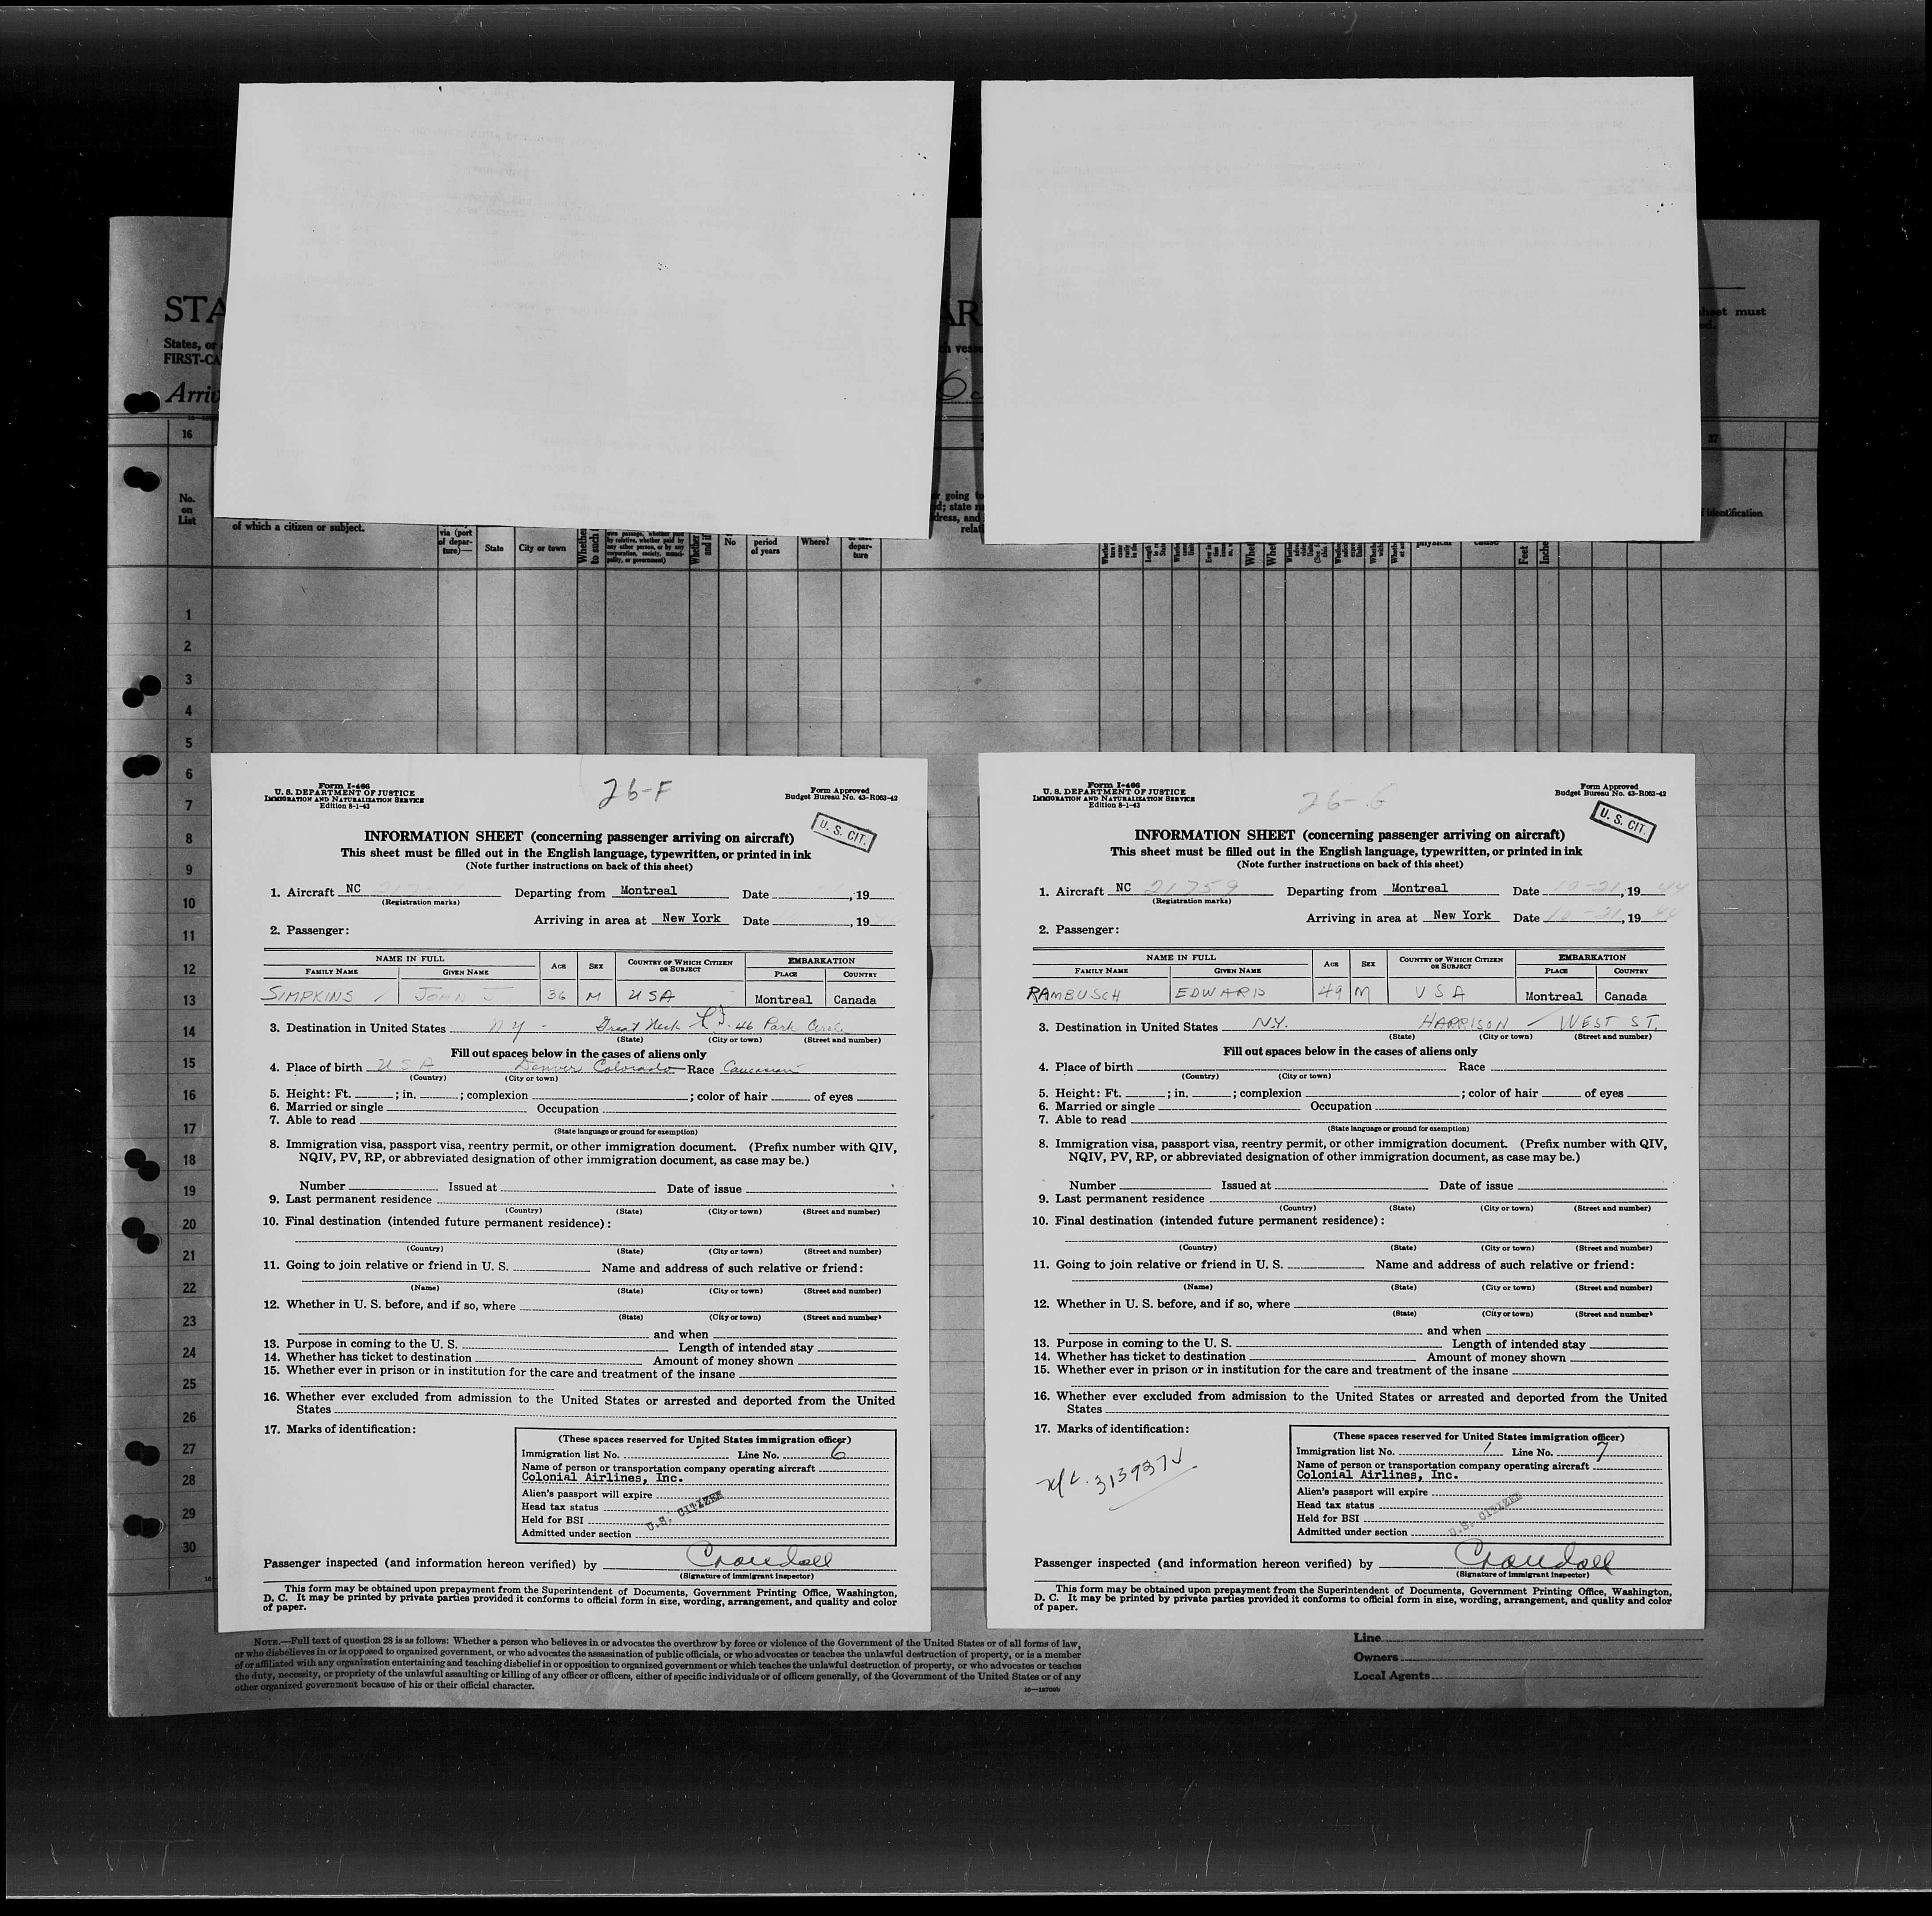 STA
AR
sheet must
States, or
h vesse
ed.
FIRST-CA
Arriv
Oc
16
37
No.
on
List
of which a citizen or subject.
via (port
of depar-
ture)—
State
City or town
Whether
to such
own passage, whether paid
by relative, whether paid by
any other person, or by any
corporation, society, munici-
pality, or government)
Whether
and if
No
period
of years
Where?
depar-
ture
r going to
d; state n
dress, and
relati
physical
cause
Feet
Inche
identification
1
2
3
4
5
6
7
8
9
10
11
12
13
14
15
16
17
18
19
20
21
22
23
24
25
26
27
28
29
30
Form I-466
U. S. DEPARTMENT OF JUSTICE
IMMIGRATION AND NATURALIZATION SERVICE
Edition 8-1-43
26-F
Form Approved
Budget Bureau No. 43-R063-42
U. S. CIT.
INFORMATION SHEET (concerning passenger arriving on aircraft)
This sheet must be filled out in the English language, typewritten, or printed in ink
(Note further instructions on back of this sheet)
1. Aircraft NC Departing from Montreal Date , 19
(Registration marks)
Arriving in area at New York Date , 19
2. Passenger:
NAME IN FULL AGE SEX COUNTRY OF WHICH CITIZEN OR SUBJECT EMBARKATION
FAMILY NAME GIVEN NAME PLACE COUNTRY
SIMPKINS JOHN J 36 M USA Montreal Canada
3. Destination in United States NY - Great Neck L I. 46 Park Circle
(State) (City or town) (Street and number)
Fill out spaces below in the cases of aliens only
4. Place of birth USA Denver Colorado Race Caucasian
(Country) (City or town)
5. Height: Ft. ; in. ; complexion ; color of hair of eyes
6. Married or single Occupation
7. Able to read
(State language or ground for exemption)
8. Immigration visa, passport visa, reentry permit, or other immigration document. (Prefix number with QIV,
NQIV, PV, RP, or abbreviated designation of other immigration document, as case may be.)
Number Issued at Date of issue
9. Last permanent residence
(Country) (State) (City or town) (Street and number)
10. Final destination (intended future permanent residence):
(Country) (State) (City or town) (Street and number)
11. Going to join relative or friend in U. S. Name and address of such relative or friend:
(Name) (State) (City or town) (Street and number)
12. Whether in U. S. before, and if so, where
(State) (City or town) (Street and number)
and when
13. Purpose in coming to the U. S. Length of intended stay
14. Whether has ticket to destination Amount of money shown
15. Whether ever in prison or in institution for the care and treatment of the insane
16. Whether ever excluded from admission to the United States or arrested and deported from the United
States
17. Marks of identification:
(These spaces reserved for United States immigration officer)
Immigration list No. Line No. 6
Name of person or transportation company operating aircraft
Colonial Airlines, Inc.
Alien's passport will expire
Head tax status
Held for BSI
U.S. CITIZEN
Admitted under section
Passenger inspected (and information hereon verified) by Crandall
(Signature of immigrant inspector)
This form may be obtained upon prepayment from the Superintendent of Documents, Government Printing Office, Washington,
D. C. It may be printed by private parties provided it conforms to official form in size, wording, arrangement, and quality and color
of paper.
Form I-466
U. S. DEPARTMENT OF JUSTICE
IMMIGRATION AND NATURALIZATION SERVICE
Edition 8-1-43
26-G
Form Approved
Budget Bureau No. 43-R063-42
U. S. CIT.
INFORMATION SHEET (concerning passenger arriving on aircraft)
This sheet must be filled out in the English language, typewritten, or printed in ink
(Note further instructions on back of this sheet)
1. Aircraft NC 21759 Departing from Montreal Date 10-21, 19 44
(Registration marks)
Arriving in area at New York Date 10-21, 19 44
2. Passenger:
NAME IN FULL AGE SEX COUNTRY OF WHICH CITIZEN OR SUBJECT EMBARKATION
FAMILY NAME GIVEN NAME PLACE COUNTRY
RAMBUSCH EDWARD 49 M USA Montreal Canada
3. Destination in United States N.Y. HARRISON WEST ST.
(State) (City or town) (Street and number)
Fill out spaces below in the cases of aliens only
4. Place of birth Race
(Country) (City or town)
5. Height: Ft. ; in. ; complexion ; color of hair of eyes
6. Married or single Occupation
7. Able to read
(State language or ground for exemption)
8. Immigration visa, passport visa, reentry permit, or other immigration document. (Prefix number with QIV,
NQIV, PV, RP, or abbreviated designation of other immigration document, as case may be.)
Number Issued at Date of issue
9. Last permanent residence
(Country) (State) (City or town) (Street and number)
10. Final destination (intended future permanent residence):
(Country) (State) (City or town) (Street and number)
11. Going to join relative or friend in U. S. Name and address of such relative or friend:
(Name) (State) (City or town) (Street and number)
12. Whether in U. S. before, and if so, where
(State) (City or town) (Street and number)
and when
13. Purpose in coming to the U. S. Length of intended stay
14. Whether has ticket to destination Amount of money shown
15. Whether ever in prison or in institution for the care and treatment of the insane
16. Whether ever excluded from admission to the United States or arrested and deported from the United
States
17. Marks of identification:
n/c. 3139374
(These spaces reserved for United States immigration officer)
Immigration list No. 1 Line No. 7
Name of person or transportation company operating aircraft
Colonial Airlines, Inc.
Alien's passport will expire
Head tax status
Held for BSI
U.S. CITIZEN
Admitted under section
Passenger inspected (and information hereon verified) by Crandall
(Signature of immigrant inspector)
This form may be obtained upon prepayment from the Superintendent of Documents, Government Printing Office, Washington,
D. C. It may be printed by private parties provided it conforms to official form in size, wording, arrangement, and quality and color
of paper.
NOTE.—Full text of question 28 is as follows: Whether a person who believes in or advocates the overthrow by force or violence of the Government of the United States or of all forms of law,
or who disbelieves in or is opposed to organized government, or who advocates the assassination of public officials, or who advocates or teaches the unlawful destruction of property, or is a member
of or affiliated with any organization entertaining and teaching disbelief in or opposition to organized government or which teaches the unlawful destruction of property, or who advocates or teaches
the duty, necessity, or propriety of the unlawful assaulting or killing of any officer or officers, either of specific individuals or of officers generally, of the Government of the United States or of any
other organized government because of his or their official character.
16—18709b
Line
Owners
Local Agents